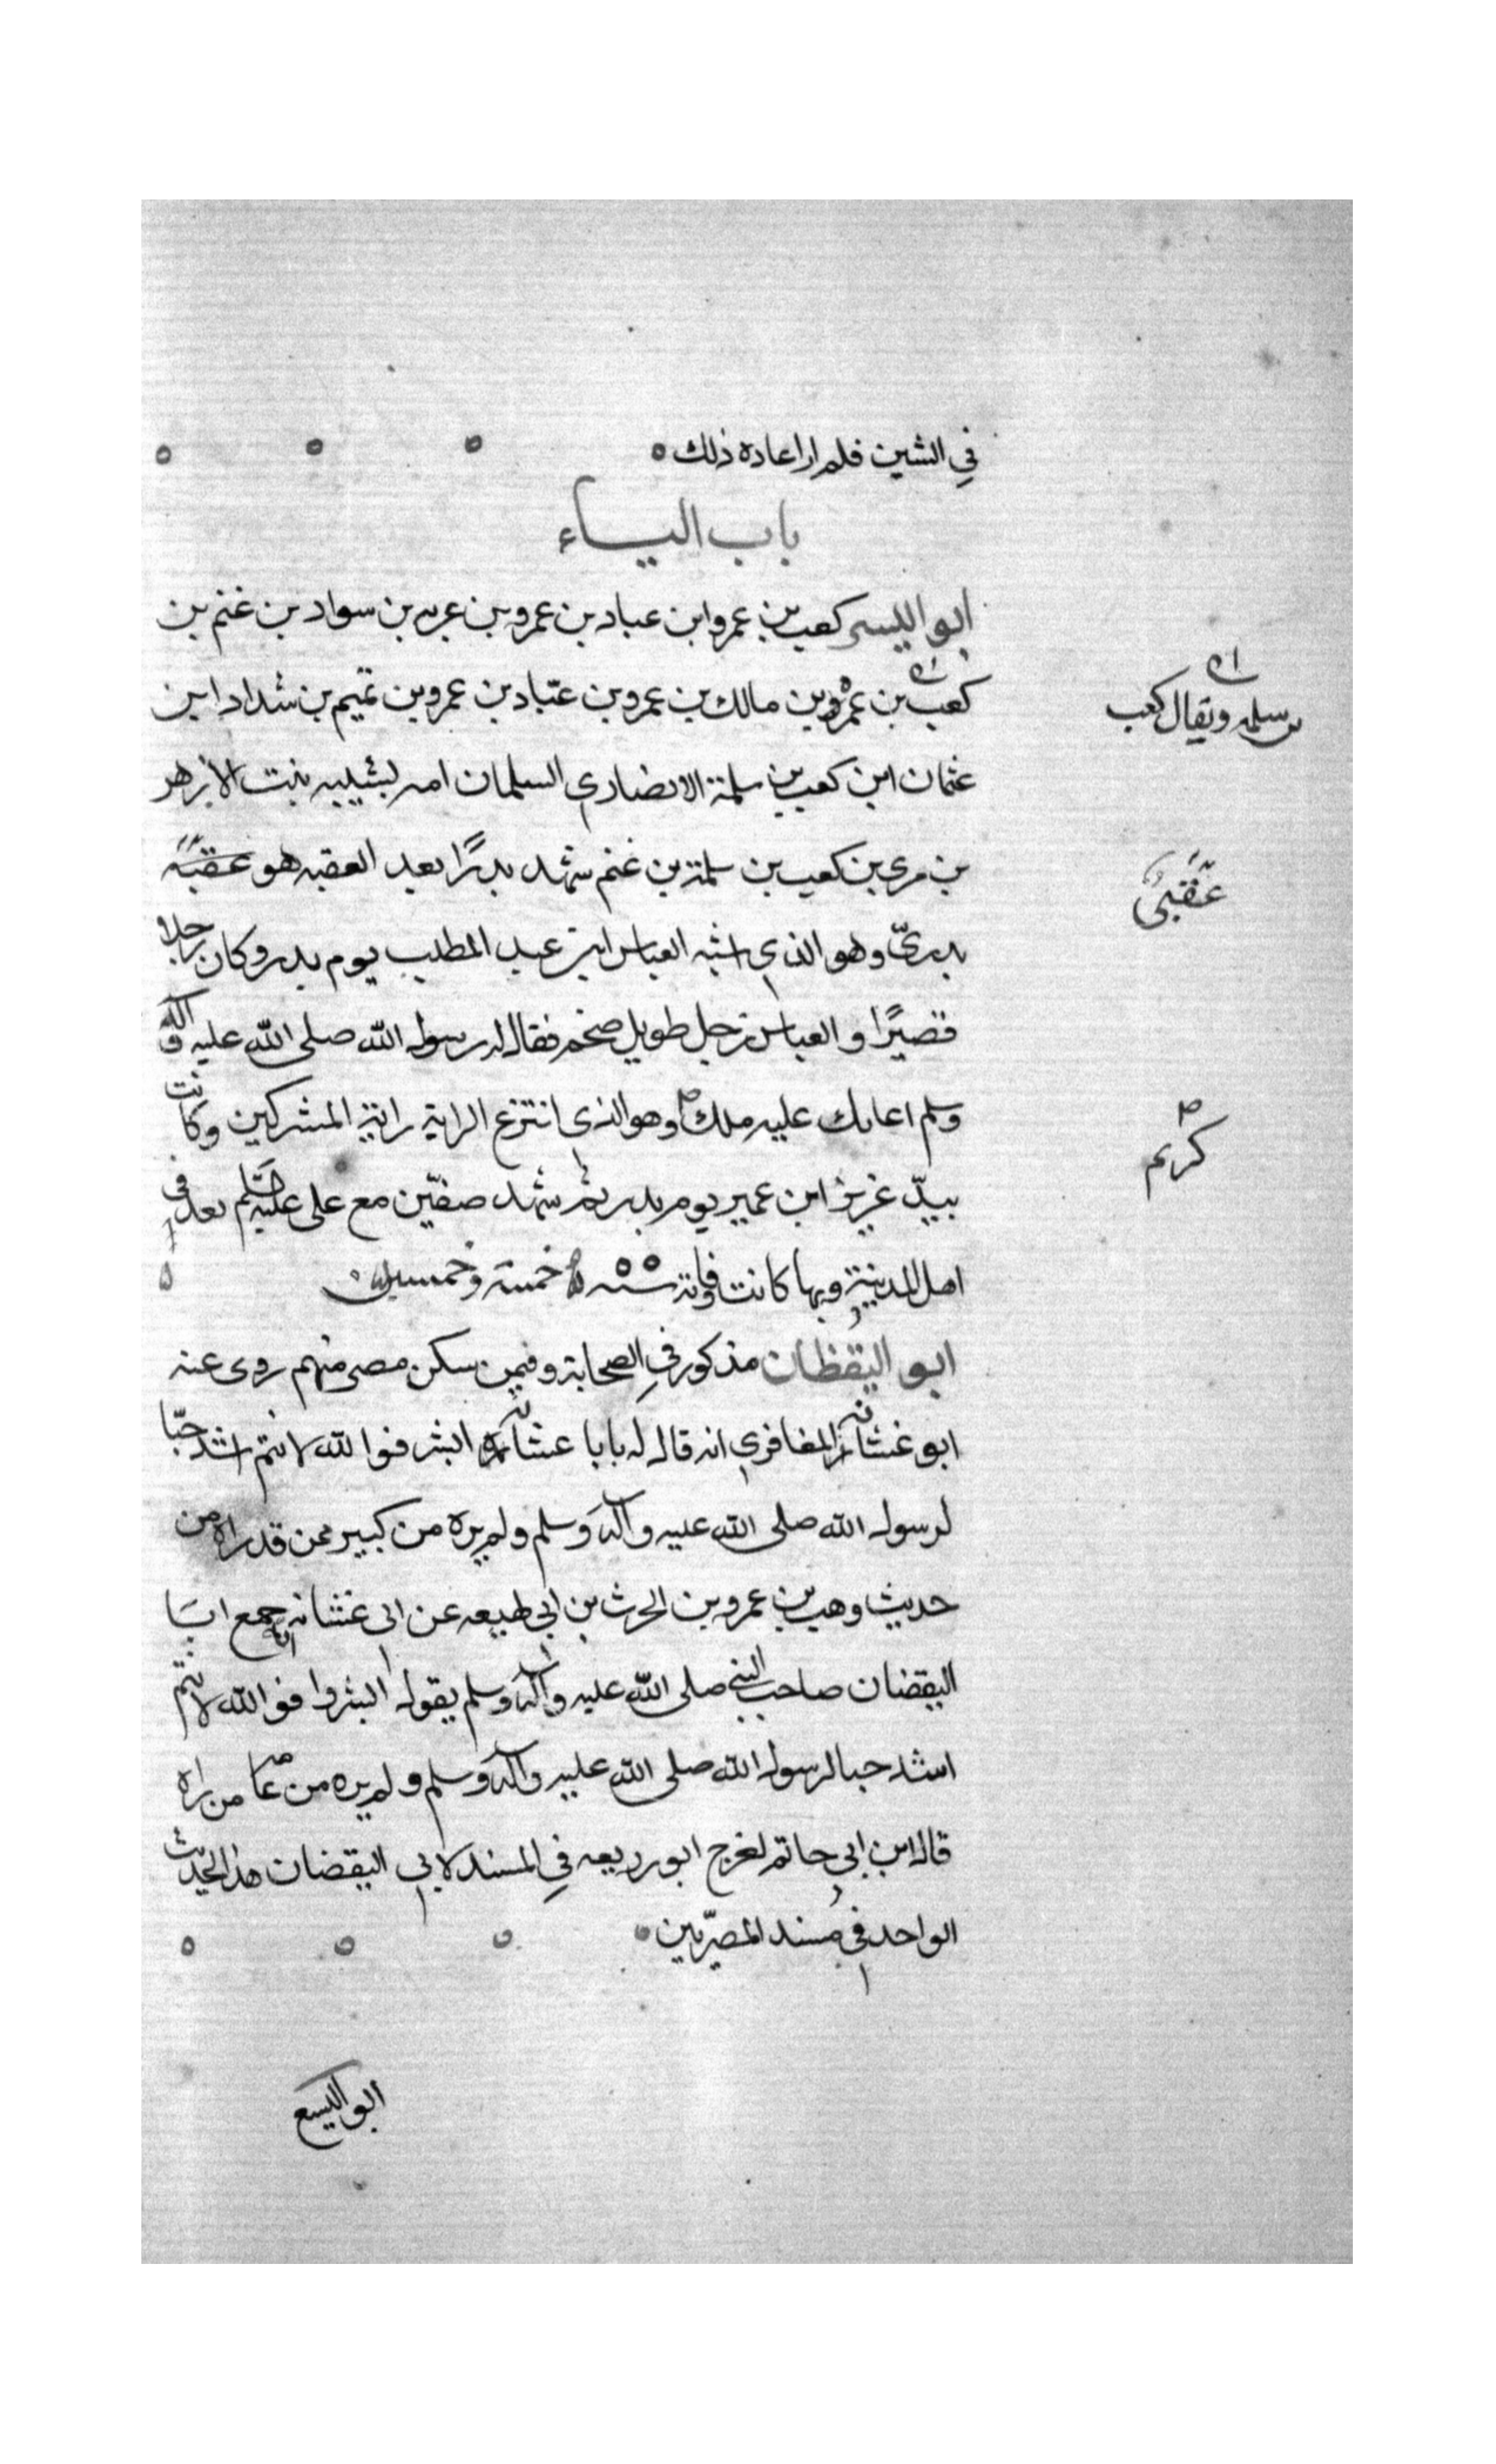 في الشين فلم ار اعاده ذلك ه ه ه ه
باب اليــاء
ابو اليسر كعب بن عمرو ابن عباد بن عمرو بن عريه بن سواد بن غنم بن
كعب بن عمرو بن مالك بن عمرو بن عبّاد بن عمرو بن تميم بن شداد ابن
بن سلمه ويقال كعب
عثمان ابن كعب بن سلمة الانصاري السلمان امه لبثيبه بنت الازهر
بن مرى بن كعب بن سلمة بن غنم شهد بدرًا بعد العقبه هو عقبة
عَقَبىُّ
بدرىّ وهو الذي اشبه العباس ابن عبد المطلب يوم بدر وكان رجلا
قصيرًا والعباس رجل طويل ضخم فقال له رسول الله صلى الله عليه وآله
وسلم اعانك عليه ملك وهو الذي انتزع الراية راية المشركين وكانت
كريم
بيدّ عزيز ابن عمير يوم بدر ثم شهد صفّين مع على عليه السلم يعد في
اهل المدينة وبها كانت وفاته سنه ٥٥ خمسة وخمسين ه
ابو اليقظان مذكور في الصحابة وفيمن سكن مصر منهم روى عنه
ابو غشانه المغافري انه قال له يابا عشانه ابشر فوالله لانتم اشد حبّا
لرسول الله صلى الله عليه وآله وسلم ولم يره من كبير ممن قد راه من
حديث وهب بن عمرو بن الحرث بن ابي لهيعه عن ابى غشانه انه جمع ابَا
اليقضان صاحب النبي صلى الله عليه وآله وسلم يقول ابشروا فو الله لانتم
اشد حبا لرسول الله صلى الله عليه وآله وسلم ولم يره من عامه من راه
قال ابن ابي حاتم لخرج ابو رربيعه في المسند لابي اليقضان هذ الحديث
الواحد في مسند المصرّيين ه ه ه ه
ابو اليسع